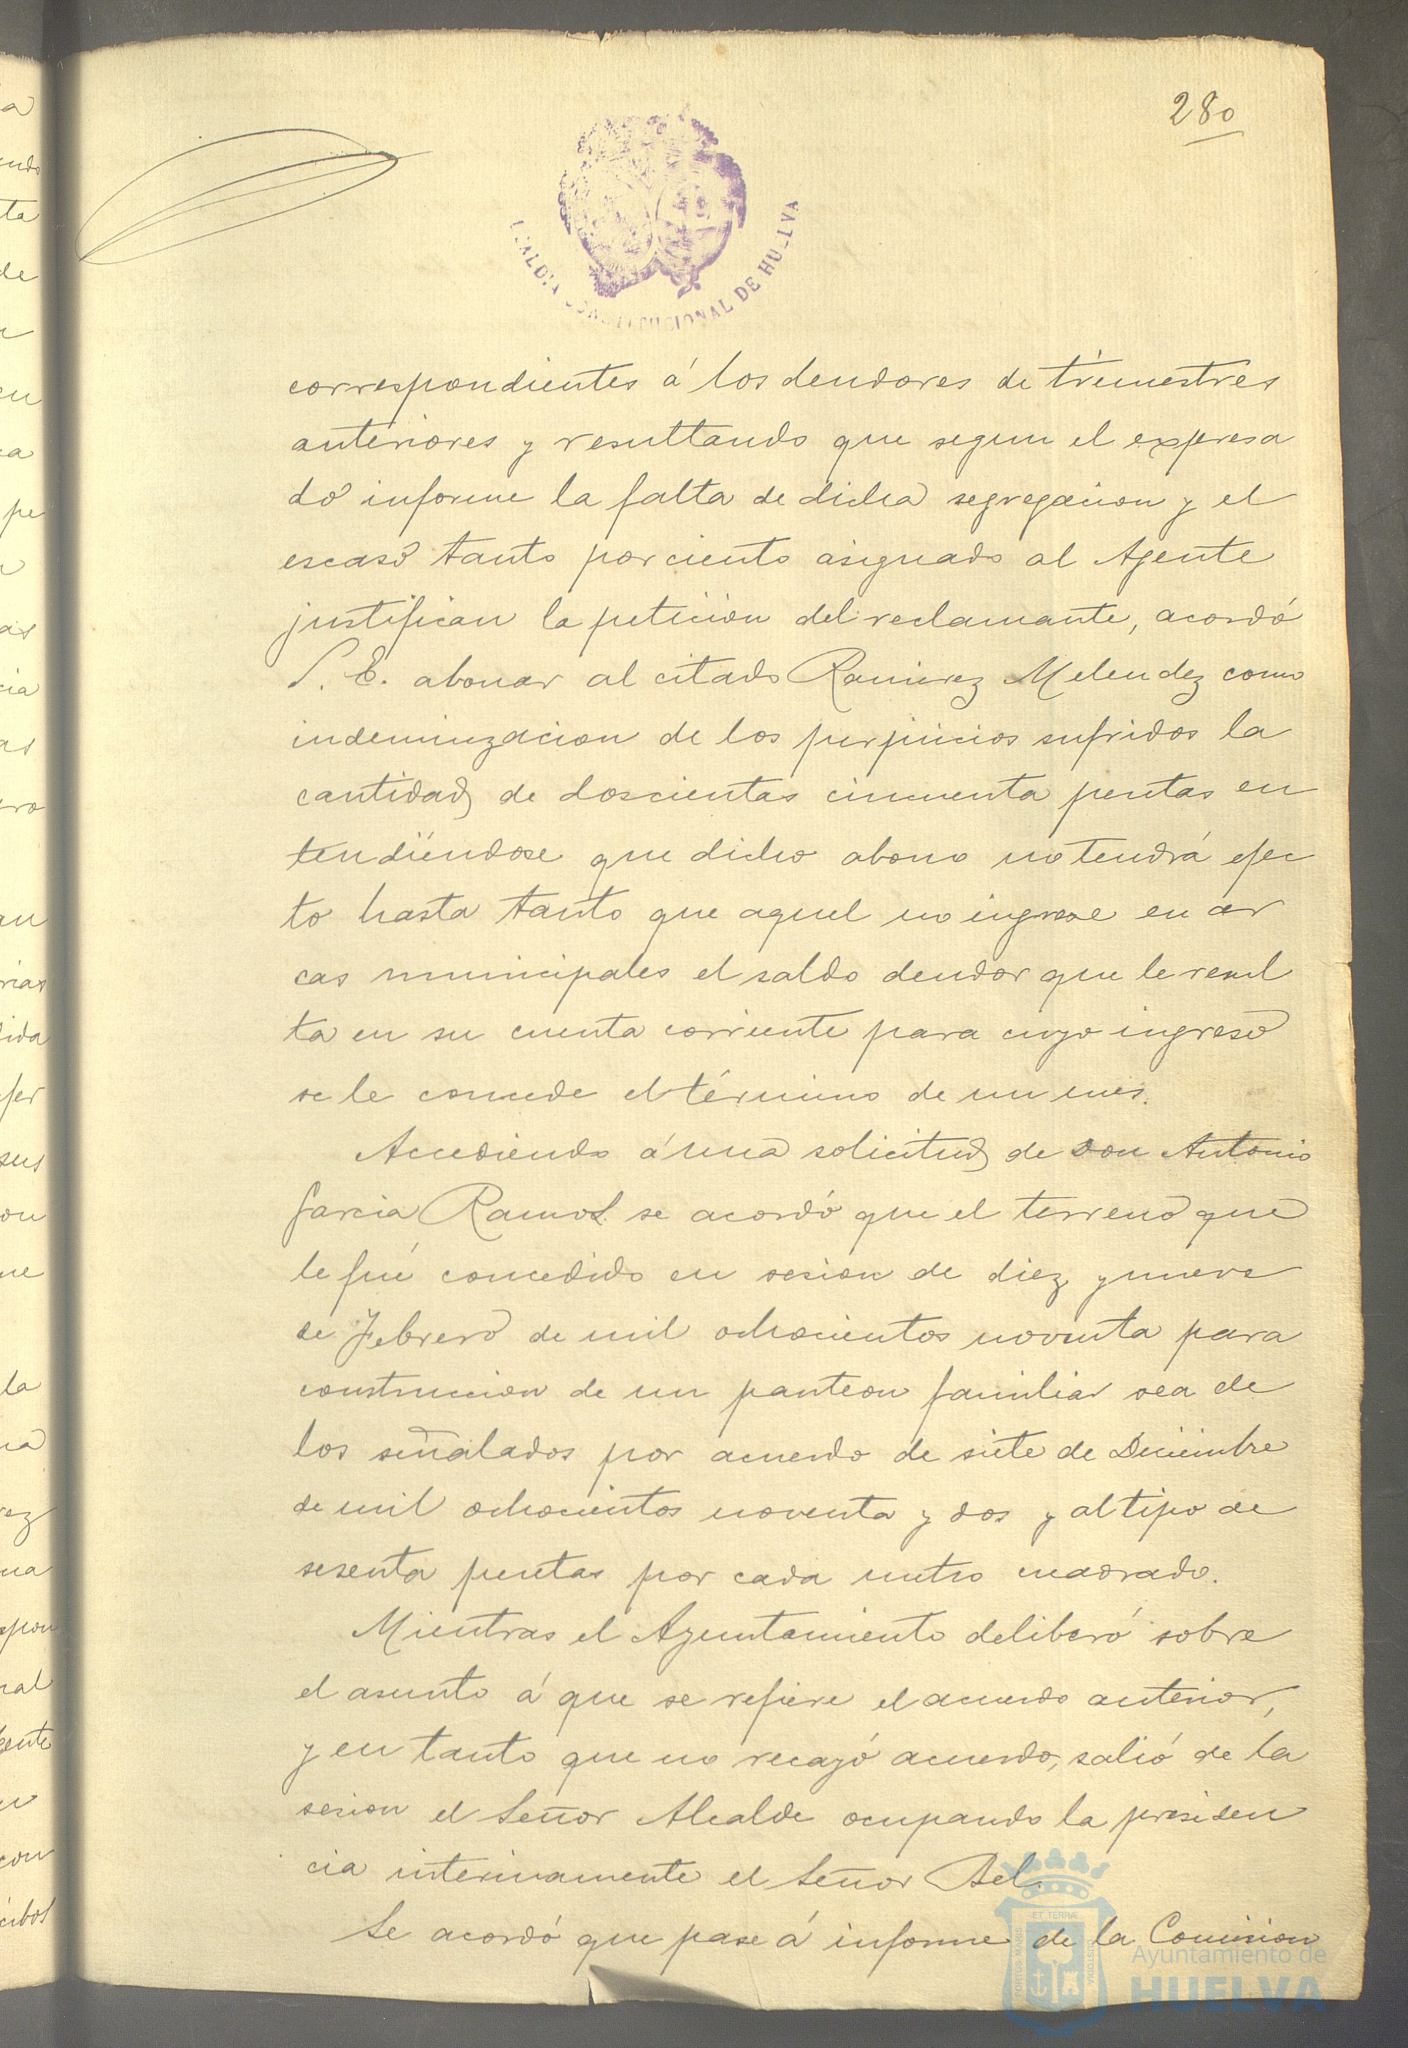 280
ALCALDIA CONSTITUCIONAL DE HUELVA
correspondientes á los deudores de trimestres
anteriores y resultando que segun el expresa
do informe la falta de dicha segregacion y el
escaso tanto por ciento asignado al Agente
justifican la peticion del reclamante, acordó
S. E. abonar al citado Ramirez Melendez como
indemnizacion de los perjuicios sufridos la
cantidad de doscientas cincuenta pesetas en
tendiéndose que dicho abono no tendrá efec
to hasta tanto que aquel no ingrese en ar
cas municipales el saldo deudor que le resul
ta en su cuenta corriente para cuyo ingreso
se le concede el término de un mes.
Accediendo á una solicitud de Don Antonio
Garcia Ramos se acordó que el terreno que
le fué concedido en sesion de diez y nueve
de Febrero de mil ochocientos noventa para
construccion de un panteon familiar sea de
los señalados por acuerdo de siete de Diciembre
de mil ochocientos noventa y dos y al tipo de
sesenta pesetas por cada metro cuadrado.
Mientras el Ayuntamiento deliberó sobre
el asunto á que se refiere el acuerdo anterior,
y en tanto que no recayó acuerdo, salió de la
sesion el Señor Alcalde ocupando la presiden
cia interinamente el Señor Bel.
Se acordó que pase á informe de la Comision
Ayuntamiento de
HUELVA